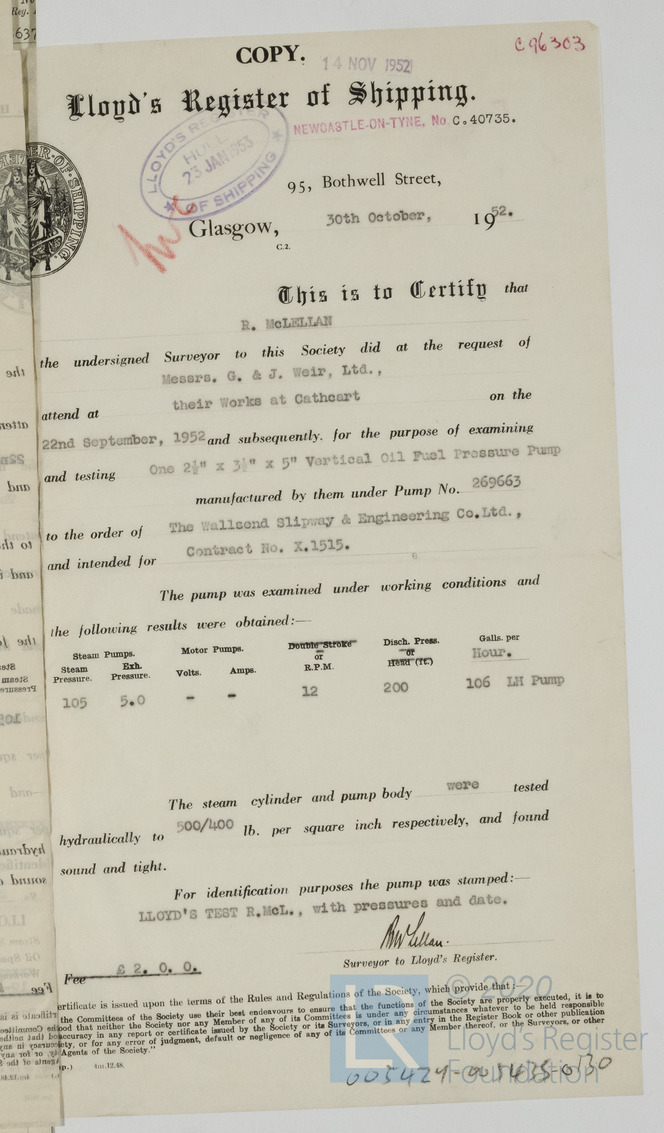 COPY.
14 NOV 1952
C96303
Lloyd's Register of Shipping.
NEWCASTLE-ON-TYNE, No. C.40735.
LLOYD'S REGISTER
HULL
23 JAN 1953
OF SHIPPING
95, Bothwell Street,
Glasgow, 30th October, 1952.
C.2.
This is to Certify that
R. McLELLAN
the undersigned Surveyor to this Society did at the request of
Messrs. G. & J. Weir, Ltd.,
attend at their Works at Cathcart on the
22nd September, 1952 and subsequently. for the purpose of examining
and testing One 2½" x 3½" x 5" Vertical Oil Fuel Pressure Pump
manufactured by them under Pump No. 269663
to the order of The Wallsend Slipway & Engineering Co.Ltd.,
and intended for Contract No. X.1515.
The pump was examined under working conditions and
the following results were obtained:—
Steam Pumps. Motor Pumps. Double Stroke or R.P.M. Disch. Press. or Head (ft.) Galls. per Hour.
Steam Pressure. Exh. Pressure. Volts. Amps.
105 5.0 - - 12 200 106 LH Pump
The steam cylinder and pump body were tested
hydraulically to 500/400 lb. per square inch respectively, and found
sound and tight.
For identification purposes the pump was stamped:—
LLOYD'S TEST R.McL., with pressures and date.
RMcLellan.
Surveyor to Lloyd's Register.
Fee £ 2. 0. 0.
ertificate is issued upon the terms of the Rules and Regulations of the Society, which provide that:—
the Committees of the Society use their best endeavours to ensure that the functions of the Society are properly executed, it is to
ood that neither the Society nor any Member of any of its Committees is under any circumstances whatever to be held responsible
accuracy in any report or certificate issued by the Society or its Surveyors, or in any entry in the Register Book or other publication
ety, or for any error of judgment, default or negligence of any of its Committees or any Member thereof, or the Surveyors, or other
Agents of the Society."
4m.12.48.
© 2020
Lloyd's Register
Foundation
005424-005435-0130